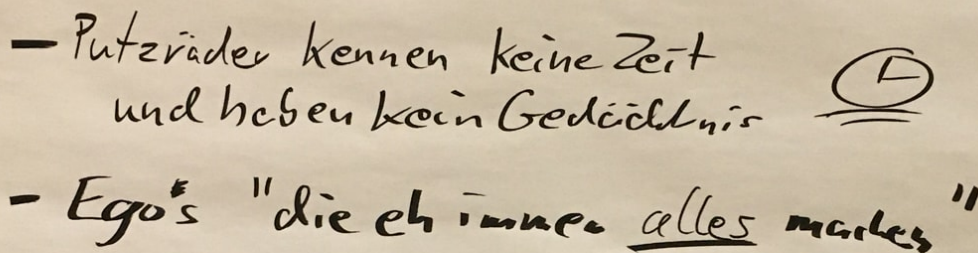 - Putzräder kennen keine Zeit
und haben kein Gedächtnis
- Ego's "die eh immer alles machen"